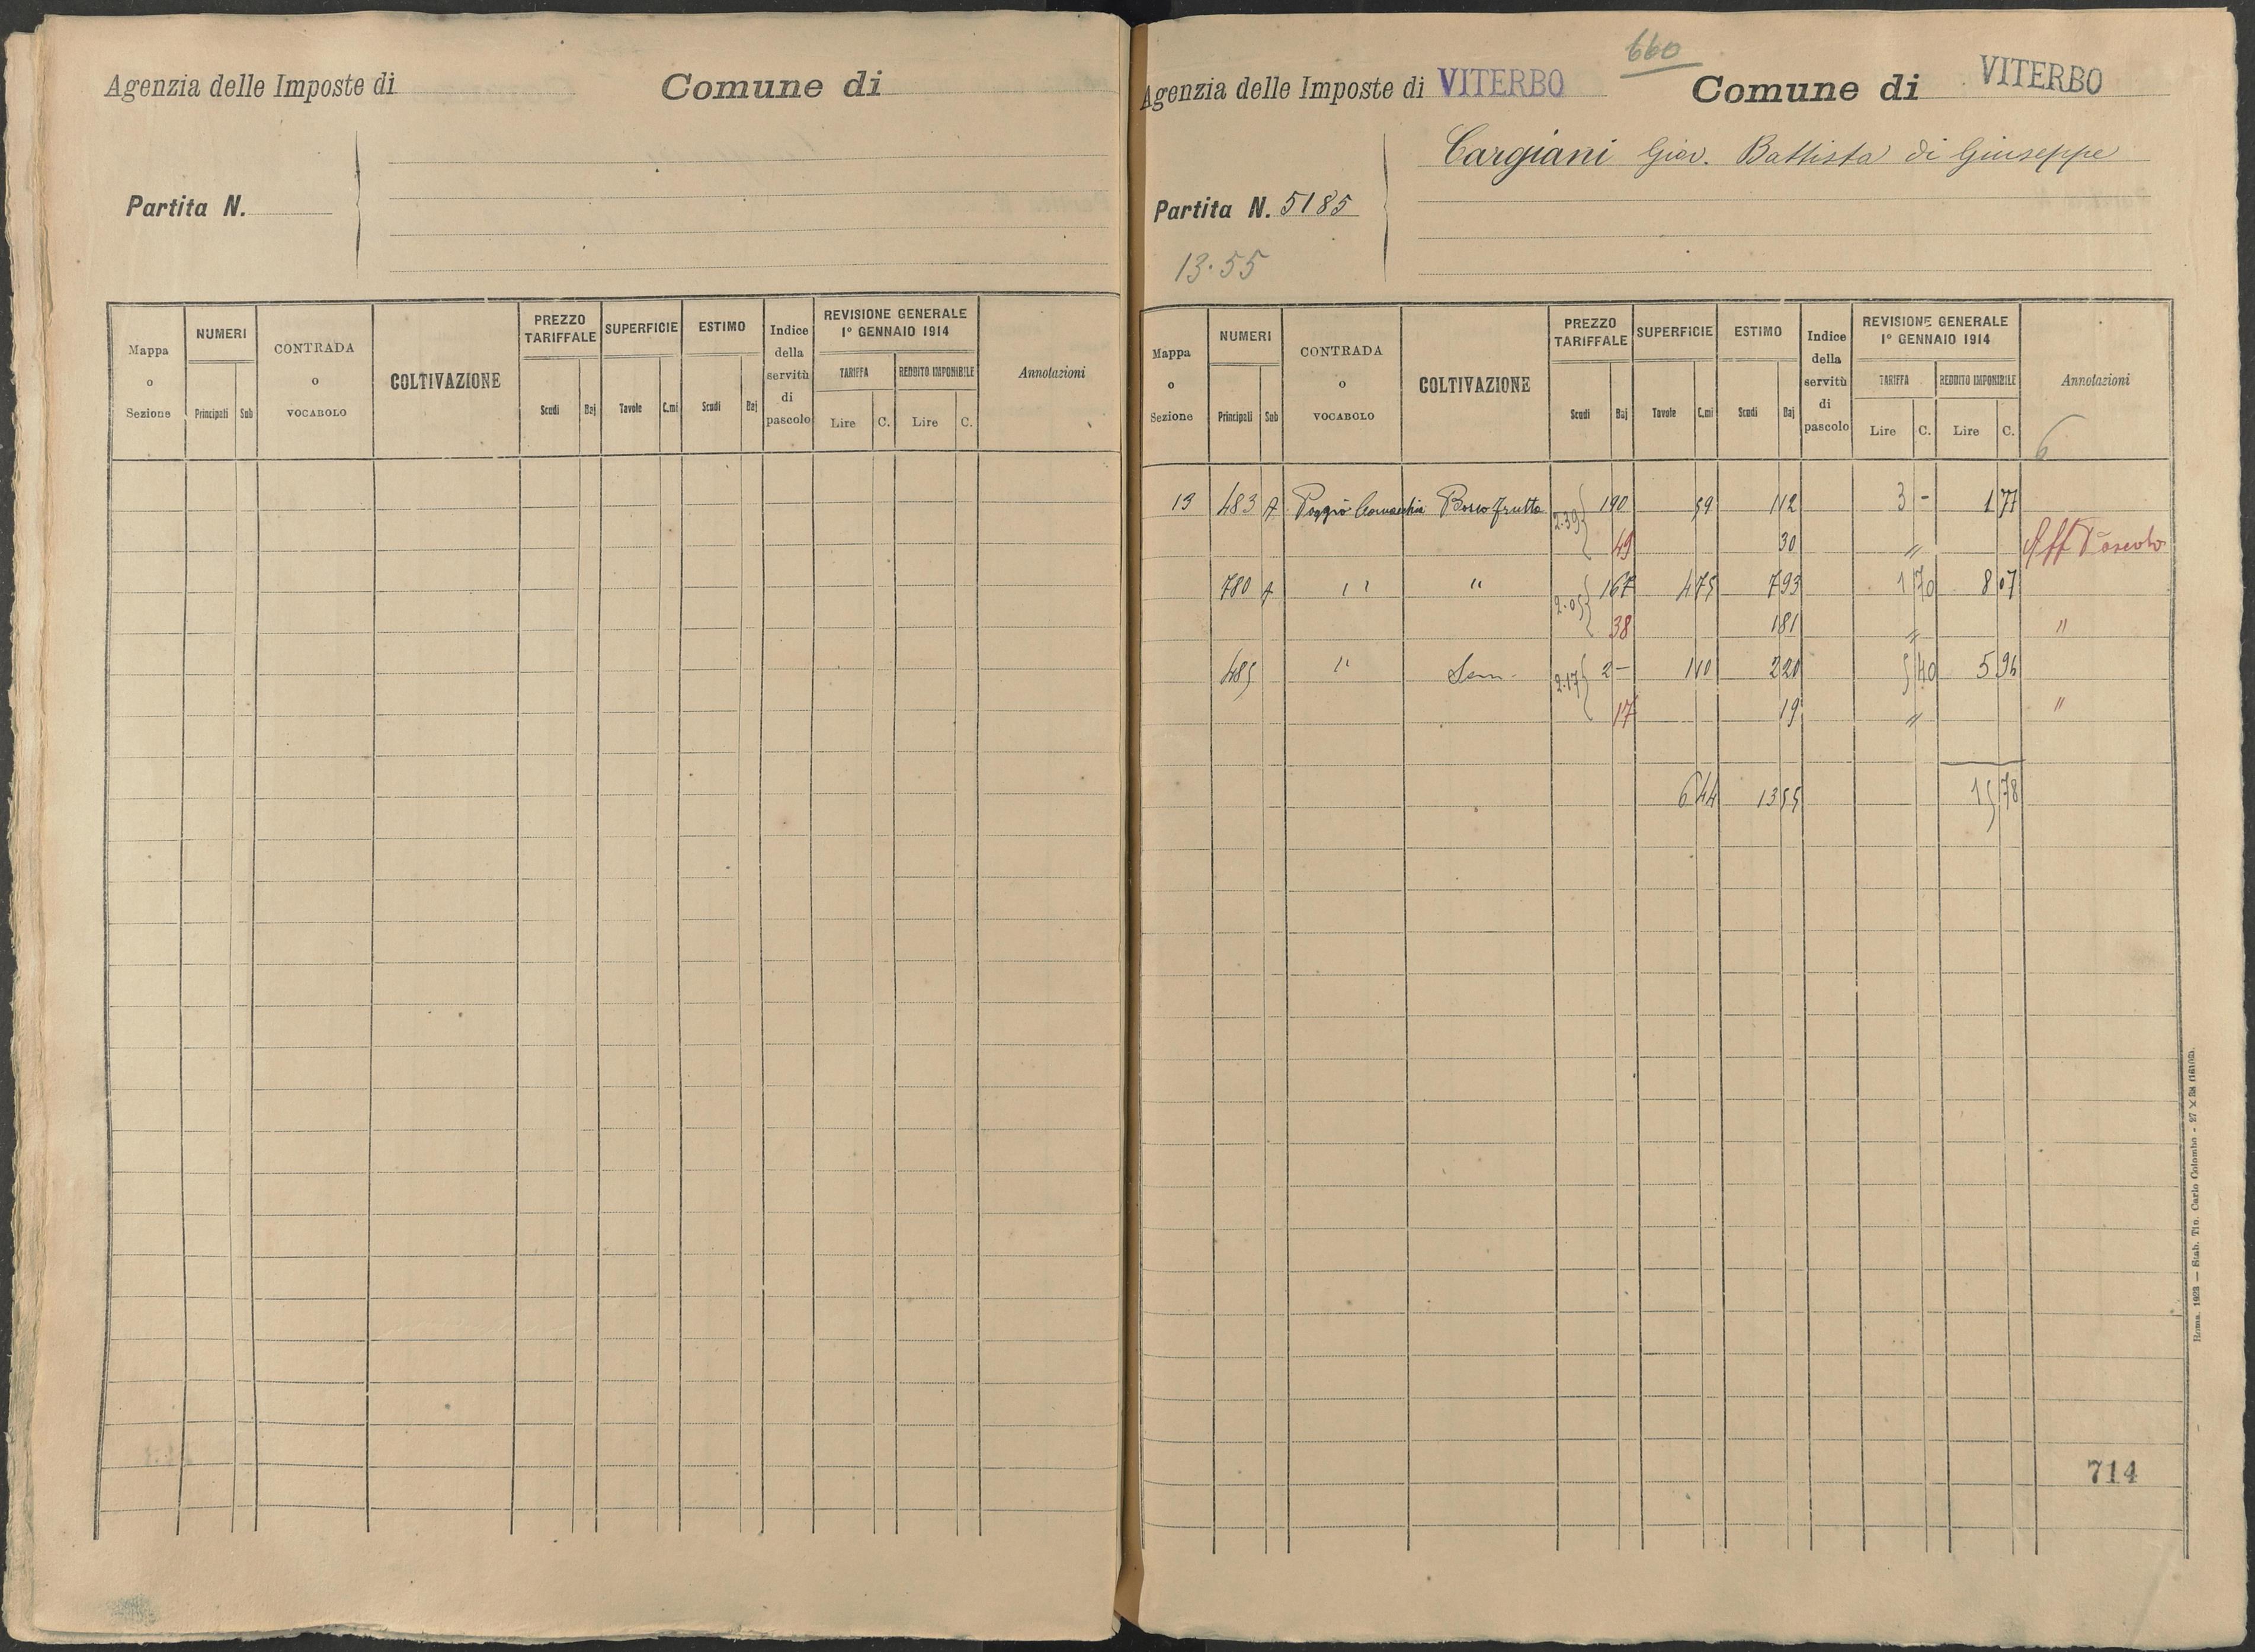 Agenzia delle Imposte di
Comune di
Partita N.
Mappa o Sezione
NUMERI
Principali Sub
CONTRADA o VOCABOLO
COLTIVAZIONE
PREZZO TARIFFALE
Scudi Baj
SUPERFICIE
Tavole C.mi
ESTIMO
Scudi Baj
Indice della servitù di pascolo
REVISIONE GENERALE 1° GENNAIO 1914
TARIFFA REDDITO IMPONIBILE
Lire C. Lire C.
Annotazioni
660
Agenzia delle Imposte di VITERBO Comune di VITERBO
Cargiani Giov. Battista di Giuseppe
Partita N. 5185
13.55
Mappa o Sezione
NUMERI
Principali Sub
CONTRADA o VOCABOLO
COLTIVAZIONE
PREZZO TARIFFALE
Scudi Baj
SUPERFICIE
Tavole C.mi
ESTIMO
Scudi Baj
Indice della servitù di pascolo
REVISIONE GENERALE 1° GENNAIO 1914
TARIFFA REDDITO IMPONIBILE
Lire C. Lire C.
Annotazioni
6
13 483 A Poggio Bosco frutta 2.39 1 90 59 1 12 3 - 1 77
49 30 "
780 A " " 2.05 1 67 4 75 7 93 1 70 8 07
38 1 81 " "
485 " Sem. 2.17 2 - 1 10 2 20 5 40 5 96
17 19 " "
6 44 13 55 15 78
714
Roma, 1923 — Stab. Tip. Carlo Colombo - 27 ×